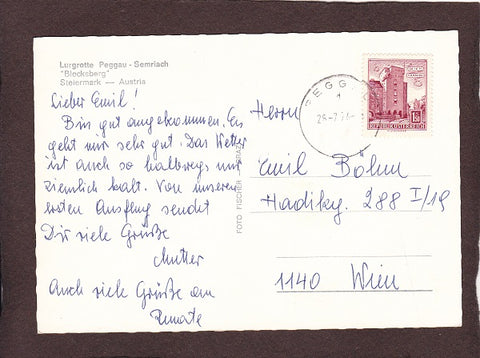 Lurgrotte Peggau - Semriach
"Blocksberg"
Steiermark — Austria
Lieber Emil!
Bin gut angekommen. Es
geht mir sehr gut. Das Wetter
ist auch so halbwegs nur
ziemlich kalt. Von unseren
ersten Ausflug sendet
Dir viele Grüße
Mutter
Auch viele Grüße an
Renate
FOTO FISCHER GRAZ
PEGG
REPUBLIK ÖSTERREICH
Herrn
Emil Böhm
Hadikg. 288 I/19
1140 Wien